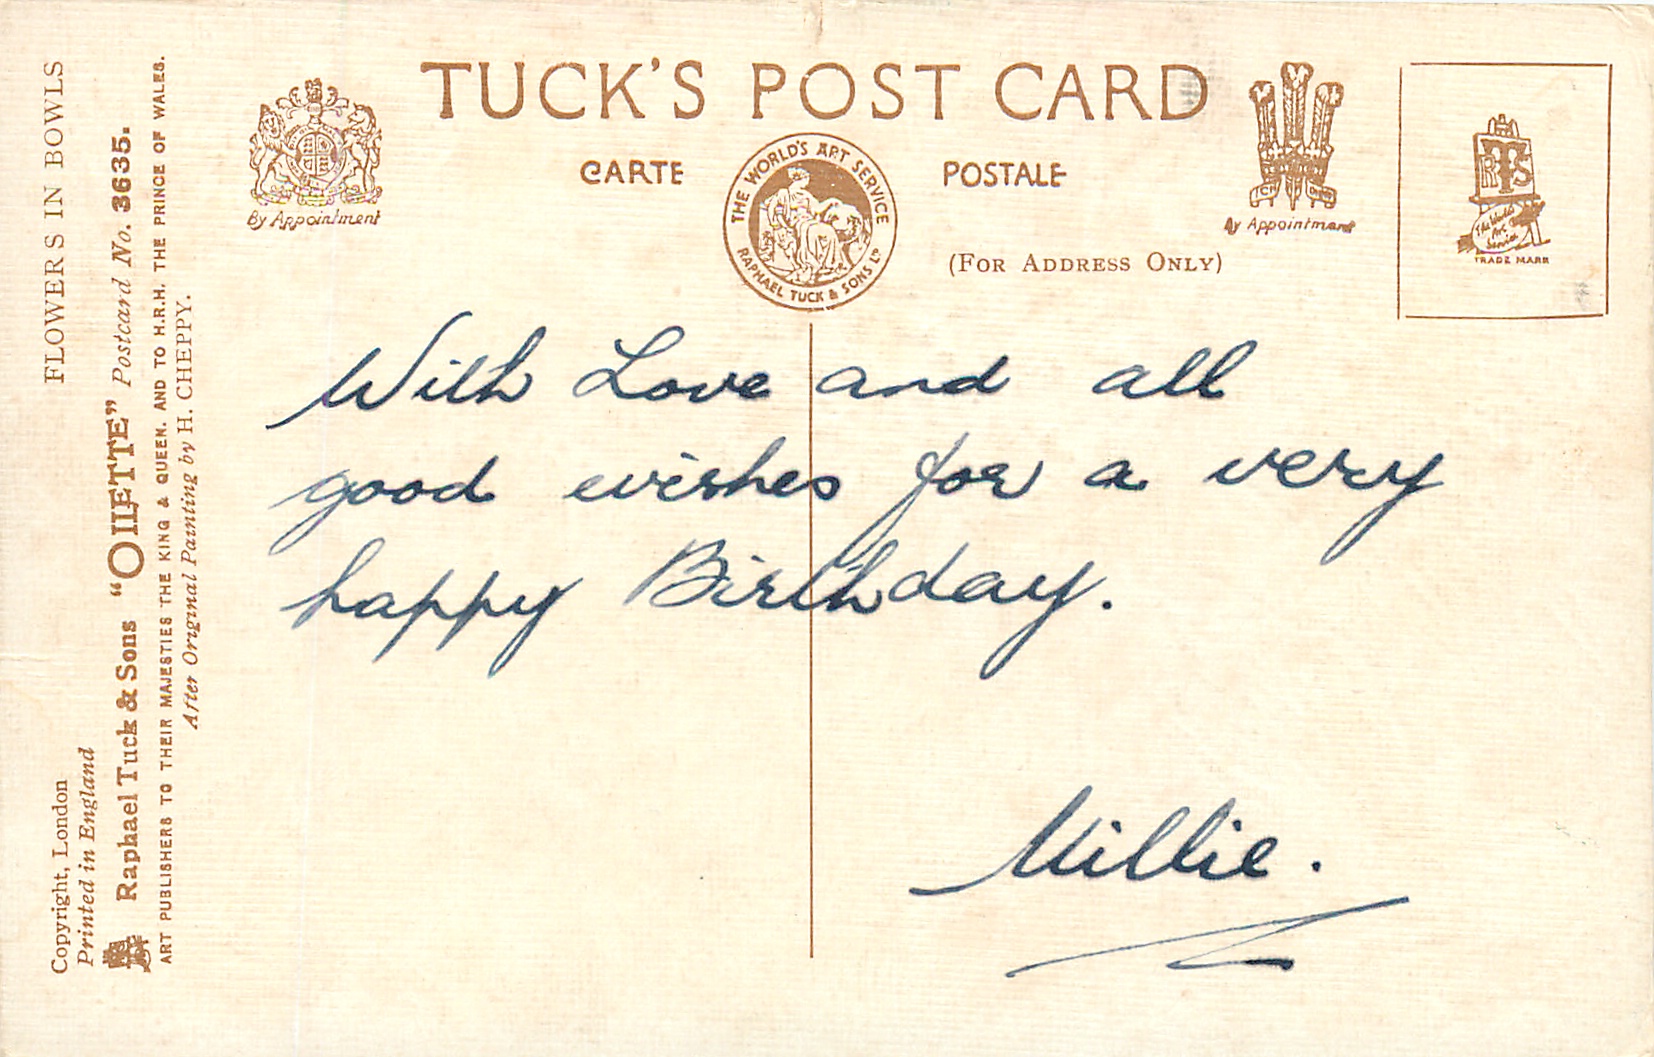 TUCK'S POST CARD
CARTE POSTALE
THE WORLD'S ART SERVICE
RAPHAEL TUCK & SONS LTD
By Appointment
By Appointment
(FOR ADDRESS ONLY)
RTS
The World's Art Service
TRADE MARK
With Love and all
good wishes for a very
happy Birthday.
Millie.
FLOWERS IN BOWLS
Copyright, London
Printed in England
Raphael Tuck & Sons "OILETTE" Postcard No. 3635.
ART PUBLISHERS TO THEIR MAJESTIES THE KING & QUEEN, AND TO H.R.H. THE PRINCE OF WALES.
After Original Painting by H. CHEPPY.